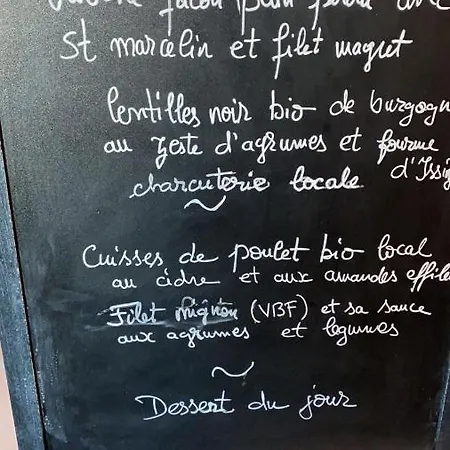 façon pain perdu
St marcelin et filet magret
lentilles noir bio de burgogn
au zeste d'agrumes et fourme
d'Issig
charcuterie locale
~
Cuisses de poulet bio local
au cidre et aux amandes effile
Filet mignon (VBF) et sa sauce
aux agrumes et legumes
~
Dessert du jour